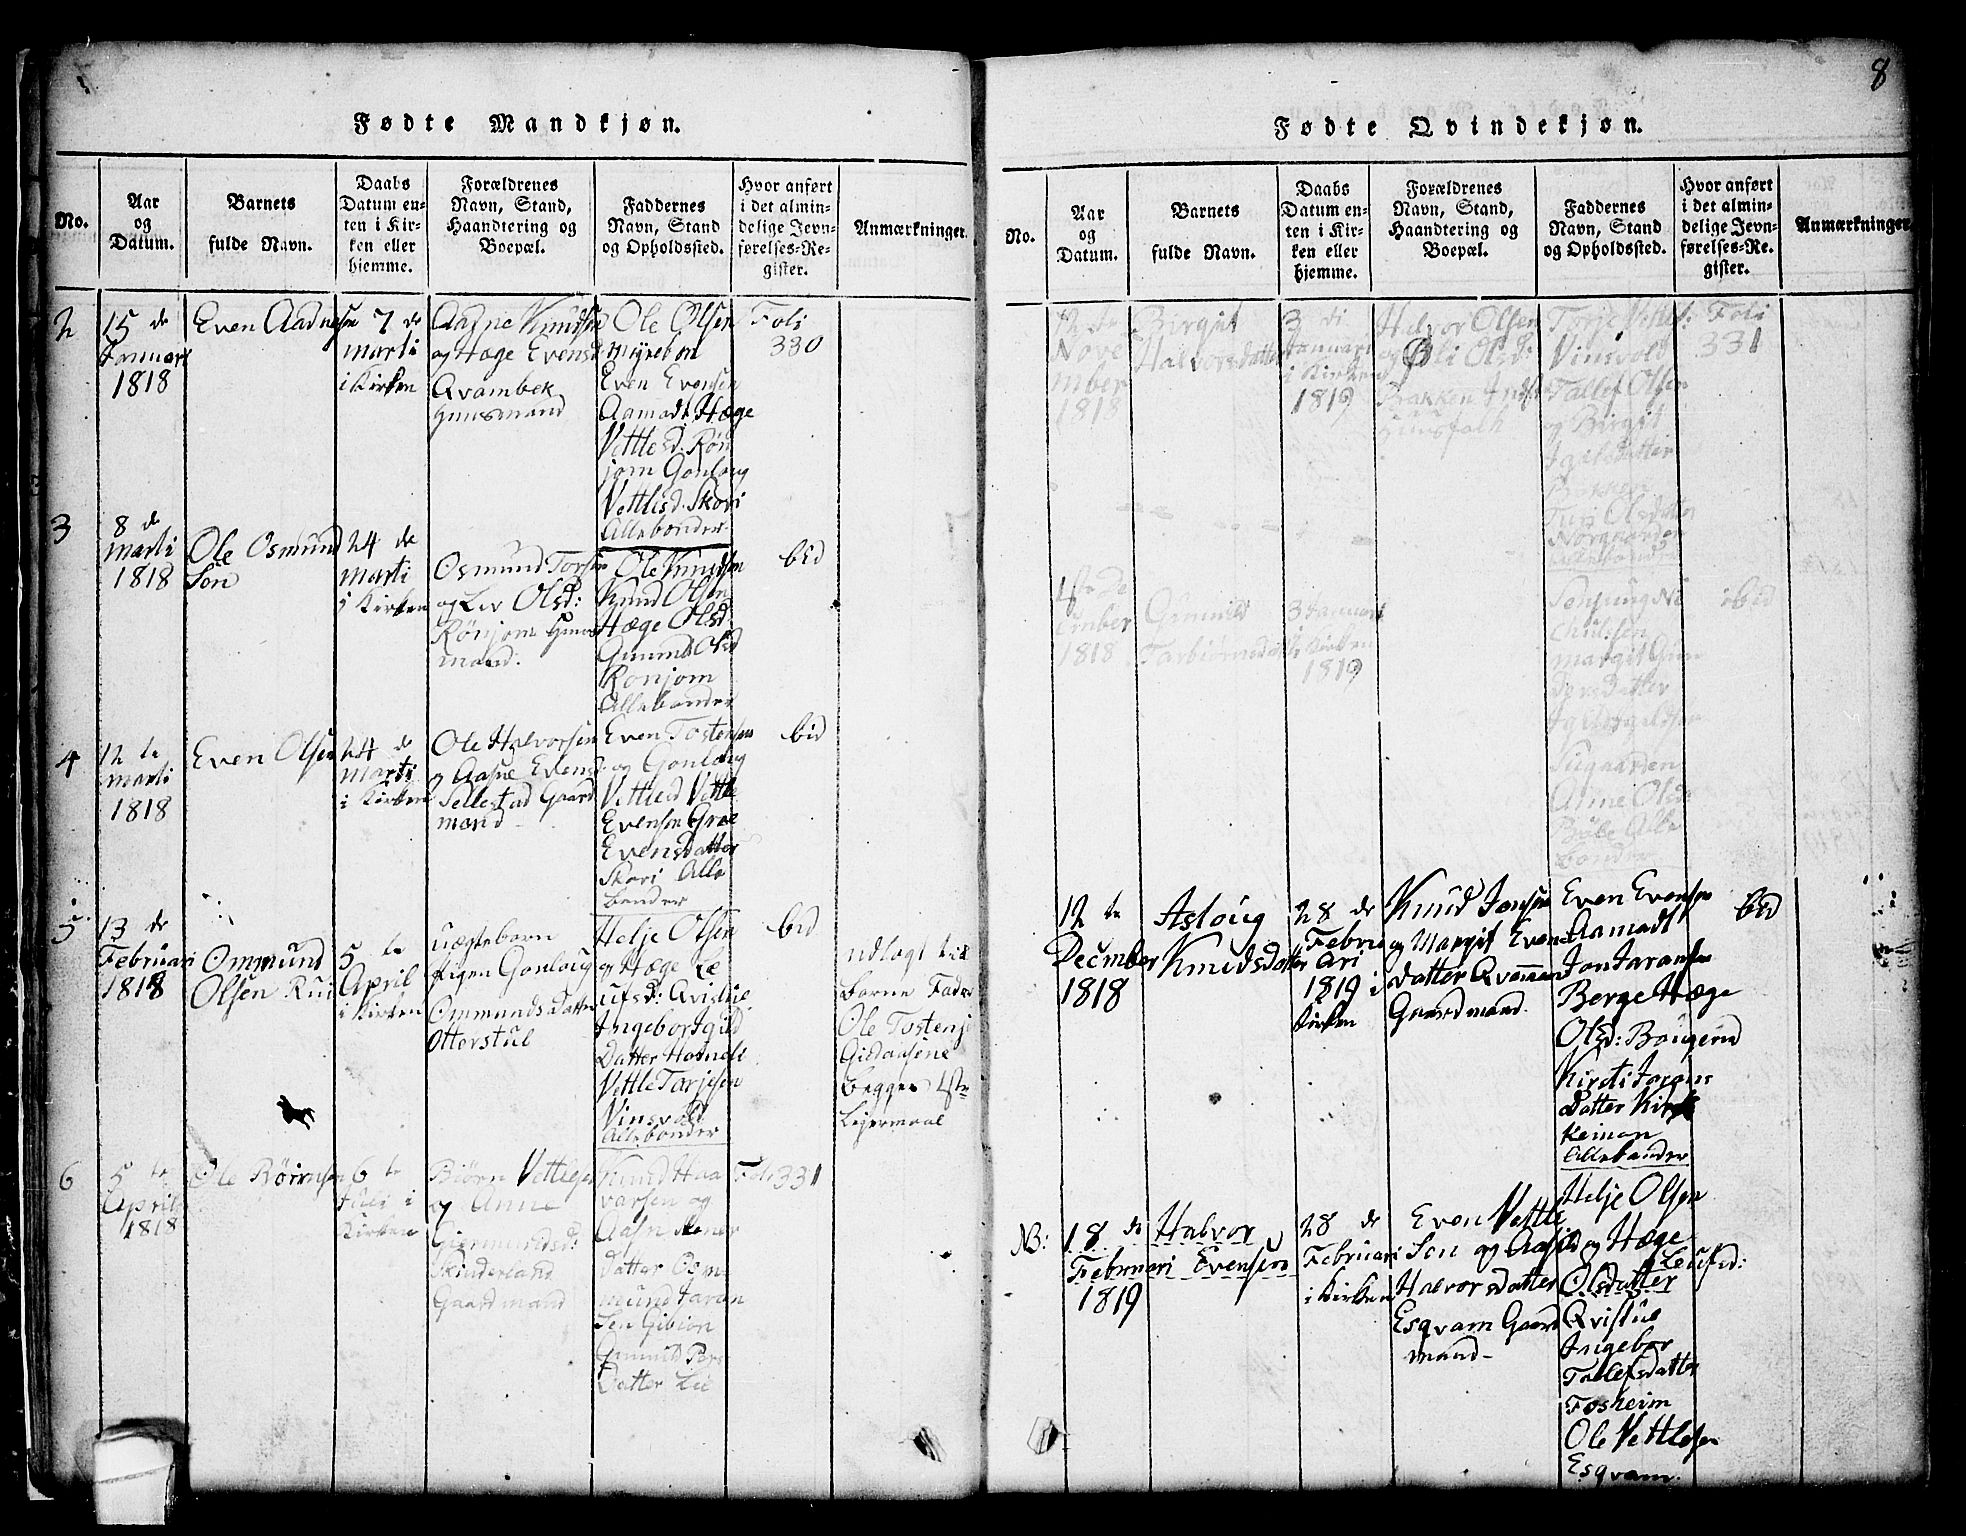 Fødte Mandkjøn.
No.
Aar
og
Datum.
Barnets
fulde Navn.
Daabs
Datum en-
ten i Kir-
ken eller
hjemme.
Forældrenes
Navn, Stand,
Haandtering og
Boepæl.
Faddernes
Navn, Stand
og Opholdssted.
Hvor anført
i det almin-
delige Jevn-
førelses-Re-
gister.
Anmærkninger.
2
15 de
Januari
1818
Even Aadnesen
7 de
marti
i Kirken
Aadne Knudsen
og Hæge Evensd
Qvambek
Huusmand
Ole Olsen
Myrebøn
Even Evensen
Aamodt Hæge
Vettlesd. Røn
jom Gonloug
Vettlesd. Skori
Alle bønder
Foli
330
3
8 de
marti
1818
Ole Osmund
Søn
24 de
marti
i Kirken
Osmund Torsen
og Liv Olsd:
Rønjom Huus
mand.
Ole Knudsen
Knud Olsen
Hæge Olsd
Gunnild Olsd
Ronjom
Alle bønder
bid
4
12 te
marti
1818
Even Olsen
24 de
marti
i Kirken
Ole Halvorsen
og Aasne Evensd.
Sellestad Gaard
mand
Even Tostensen
og Gonloug
Vettlesd Vettle
Evensen Groe
Evensdatter
Skori Alle
bønder
bid
5
13 de
Februari
1818
Ommund
Olsen Rui
5 te
April
i Kirken
uægtebarn
Pigen Gonloug
Ommundsdatter
Otterstul
Helje Olsen
og Hæge Le
ufsd: Qvistue
Ingebor
Datter
Vettle Tarjesen
Vinsvold
Alle bønder
bid
udlagt til
Barne Fader
Ole Tosten
begges 1ste
Leiermaal
6
5 te
April
1818
Ole Biørnsen
6 te
Juli i
Kirken
Biørn Vettlesen
og Anne
Giermundsd:
Skinderland
Gaardmand
Knud Haa
varsen og
Datter Os
mund Jaran
Sen Gibion
Gunnild Pers
Datter Lie
Foli 331
8
Fødte Qvindekjøn.
No.
Aar
og
Datum.
Barnets
fulde Navn.
Daabs
Datum en-
ten i Kir-
ken eller
hjemme.
Forældrenes
Navn, Stand,
Haandtering og
Boepæl.
Faddernes
Navn, Stand
og Opholdssted.
Hvor anført
i det almin-
delige Jevn-
førelses-Re-
gister.
Anmærkninger
12 te
Nove
mber
1818
Birgit
Halvorsdatter
3 di
Januari
i Kirken
1819
Halvor Olsen
og Olsd:
Bakken
Huusfolk
Tarje Vettles:
Vinsvold
Tallef Olsen
og Birgit
datter
Bakken
Turi Olsdatter
Norgaarden
Foli
331
1ste De
cember
1818
Gunnild
Tarbiørnsdatter
3 Januari
i Kirken
1819
margit Gun
Datter
Anne Olsd
Bøle Alle
bønder
ibid
12 te
December
1818
Asloug
Knudsdatter
28 de
Febru
ari
1819 i
Kirken
Knud Jonsen
og Margit Evens
datter Qvammen
Gaardmand.
Even Evensen
Aamodt
Jon Jaransen
Berge Hæge
Olsd: Bougerud
Kirsti Jorans
Datter Kirk
Keiman
Alle bønder
bid
NB:
18 de
Februari
1819
Halvor
Evensen
28 de
Februari
i Kirken
Even Vettle
Søn og Aasne
Halvorsdatter
Esqvam Gaard
mand
Helje Olsen
og Hæge
Leufsd:
Olsdatter
Qvistue
Ingebor
Tollefsdatter
Fosheim
Ole Vettlesen
Esqvam.